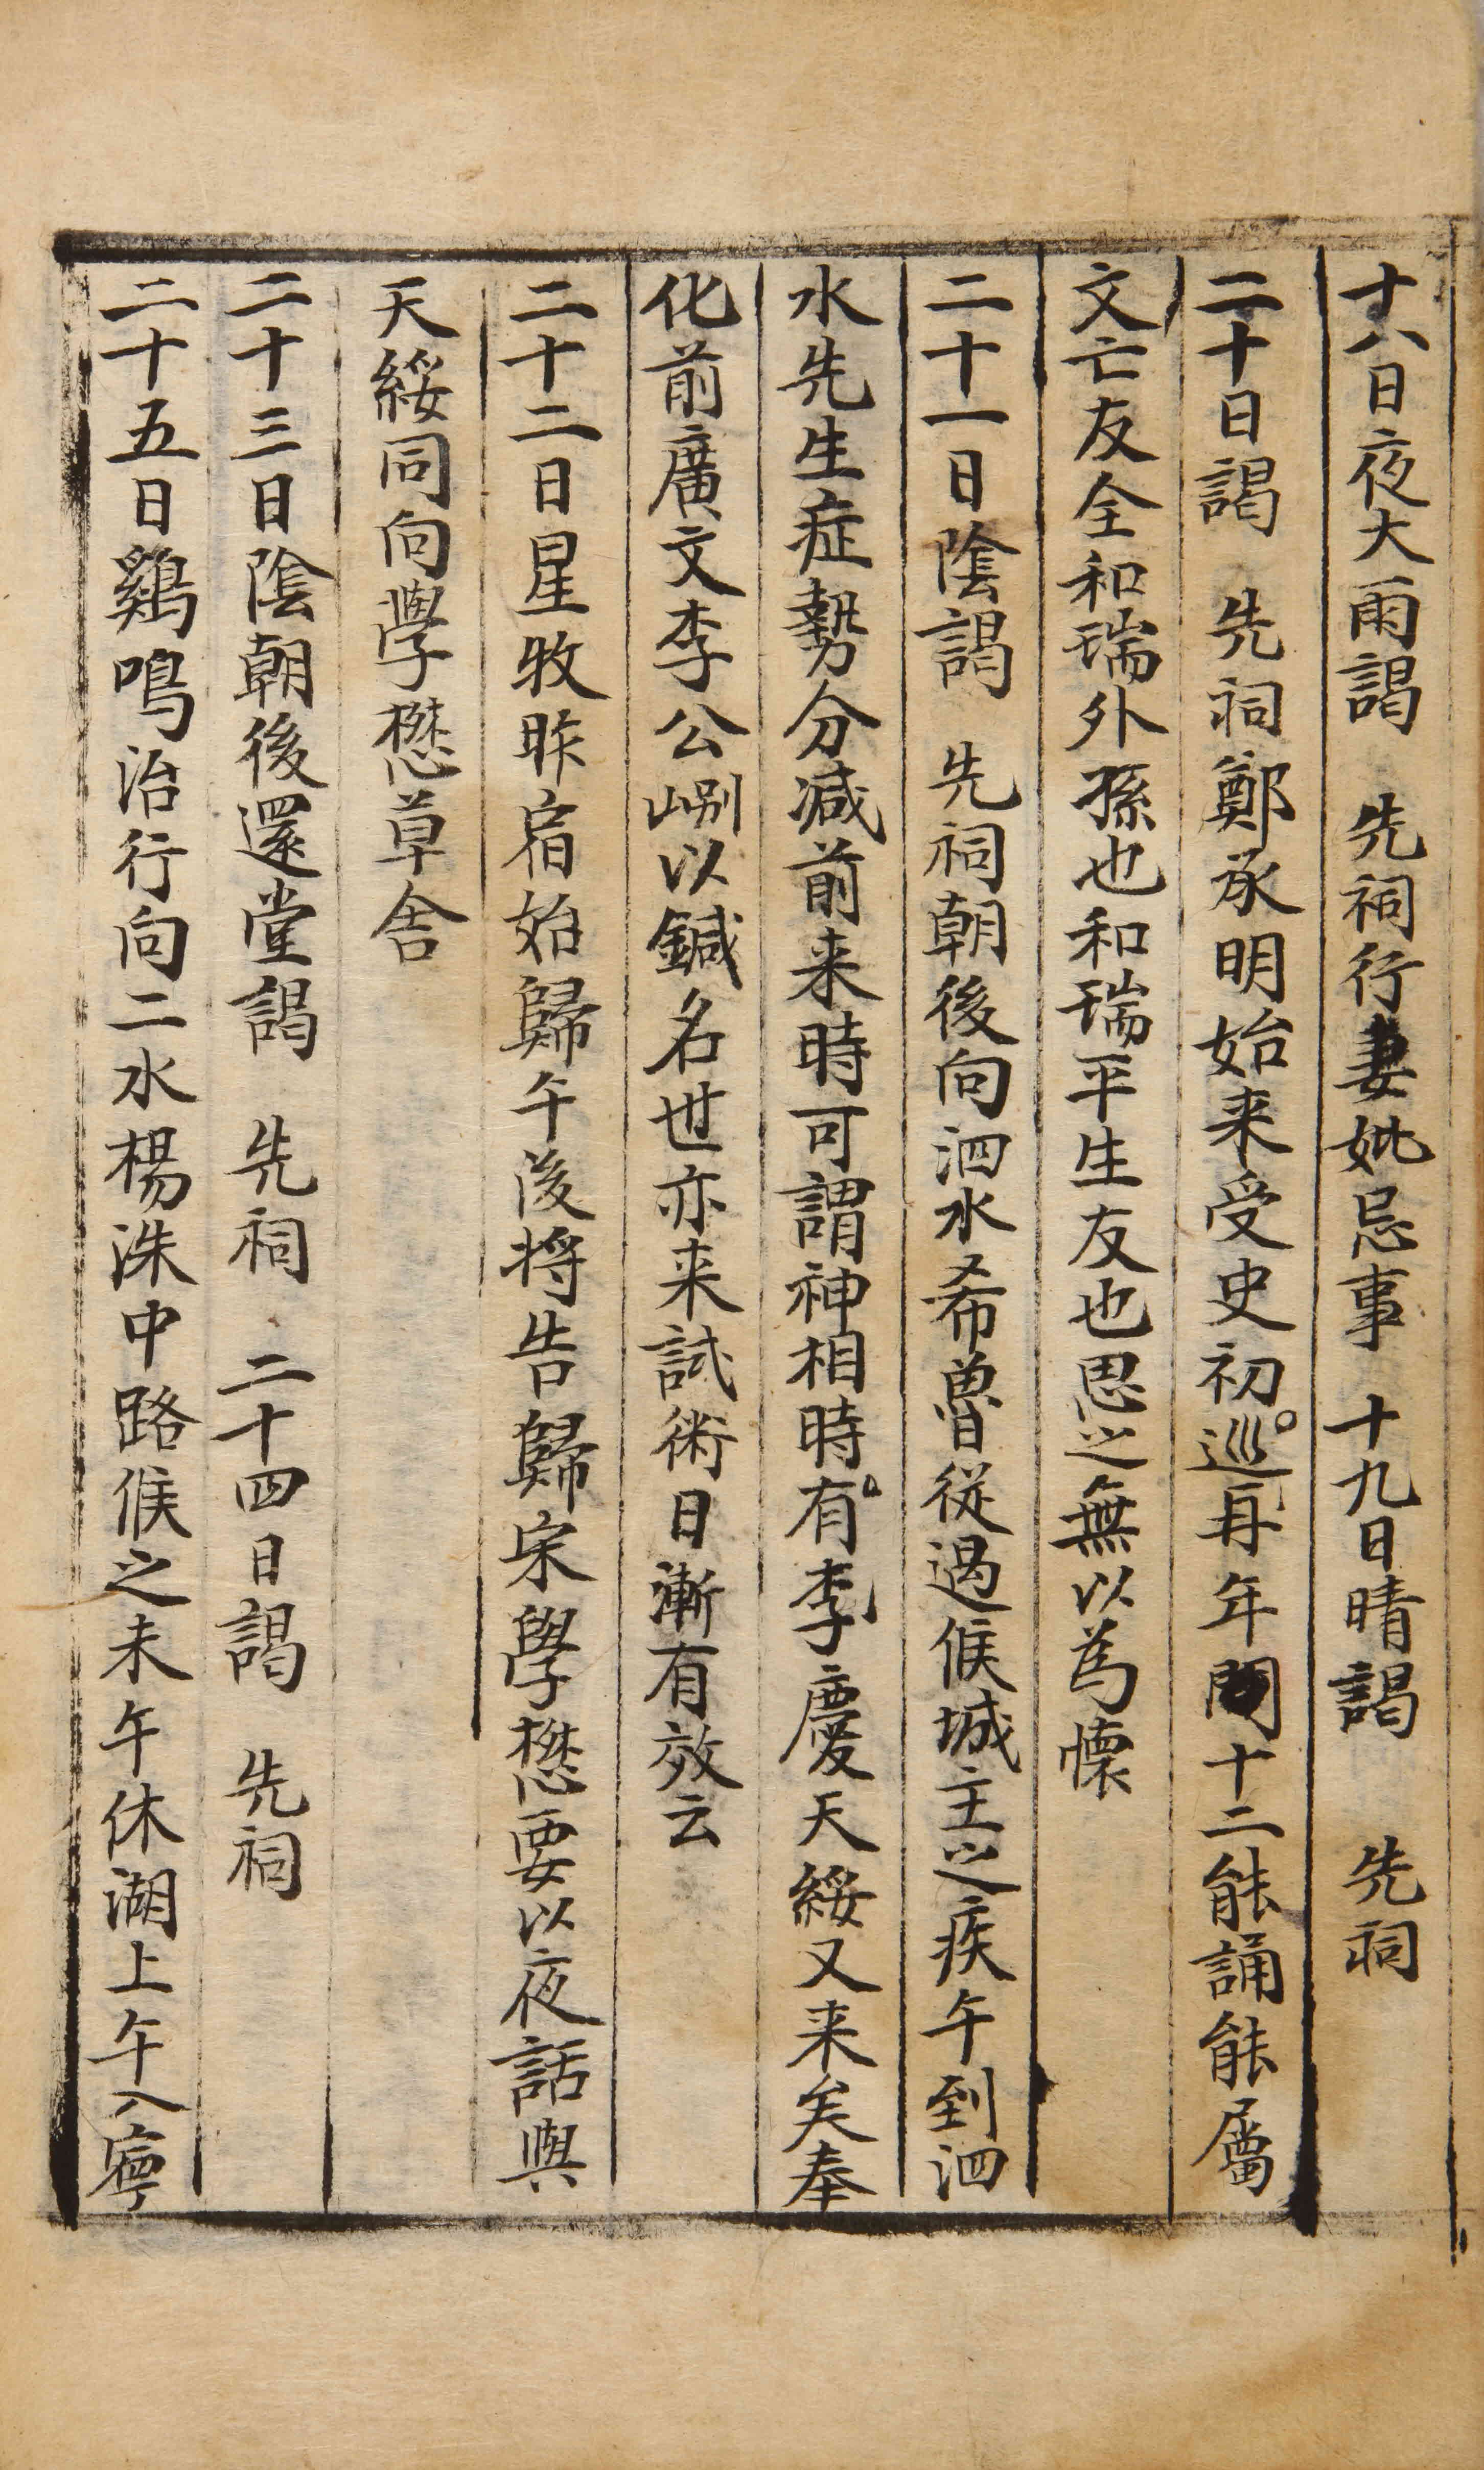 十八日夜大雨謁　先祠行妻妣忌事　十九日晴謁　先祠
二十日謁　先祠鄭承明始来受史初巡再年間十二能誦能屬
文亡友全和瑞外孫也和瑞平生友也思之無以爲懷
二十一日陰謁　先祠朝後向泗水希魯從過候城主之疾午到泗
水先生症勢分減前来時可謂神相時有李慶天綏又来矣奉
化前廣文李公以鍼名世亦来試術日漸有效云
二十二日星牧昨宿始歸午後将告歸宋學懋要以夜話與
天綏同向學懋草舍
二十三日陰朝後還堂謁　先祠　二十四日謁　先祠
二十五日鷄鳴治行向二水楊洙中路候之未午休湖上午入寧